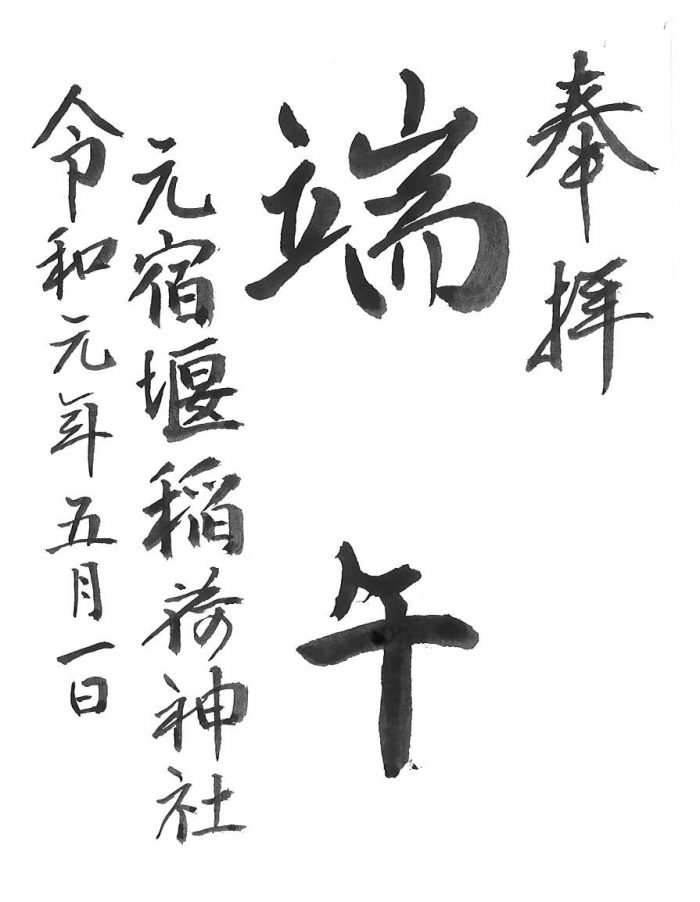 奉拝
端午
元宿堰稲荷神社
令和元年五月一日